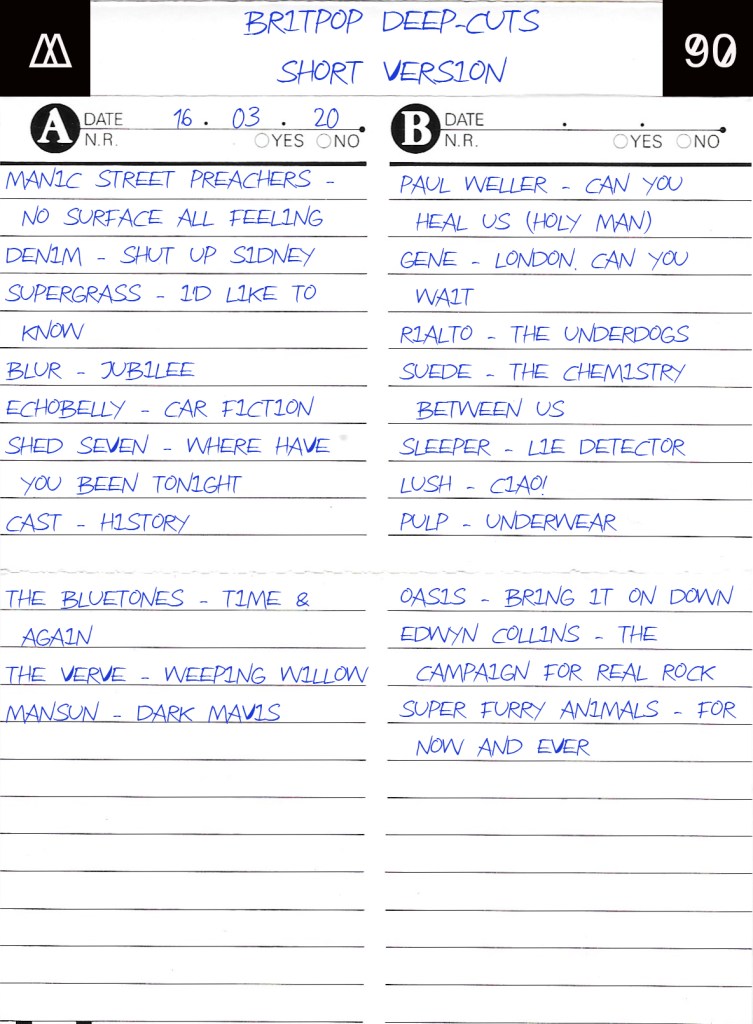 BRITPOP DEEP-CUTS
SHORT VERSION
90
A DATE 16 . 03 . 20
N.R. YES NO
MANIC STREET PREACHERS -
NO SURFACE ALL FEELING
DENIM - SHUT UP SIDNEY
SUPERGRASS - I'D LIKE TO
KNOW
BLUR - JUBILEE
ECHOBELLY - CAR FICTION
SHED SEVEN - WHERE HAVE
YOU BEEN TONIGHT
CAST - HISTORY
THE BLUETONES - TIME &
AGAIN
THE VERVE - WEEPING WILLOW
MANSUN - DARK MAVIS
B DATE . .
N.R. YES NO
PAUL WELLER - CAN YOU
HEAL US (HOLY MAN)
GENE - LONDON, CAN YOU
WAIT
RIALTO - THE UNDERDOGS
SUEDE - THE CHEMISTRY
BETWEEN US
SLEEPER - LIE DETECTOR
LUSH - CIAO!
PULP - UNDERWEAR
OASIS - BRING IT ON DOWN
EDWYN COLLINS - THE
CAMPAIGN FOR REAL ROCK
SUPER FURRY ANIMALS - FOR
NOW AND EVER